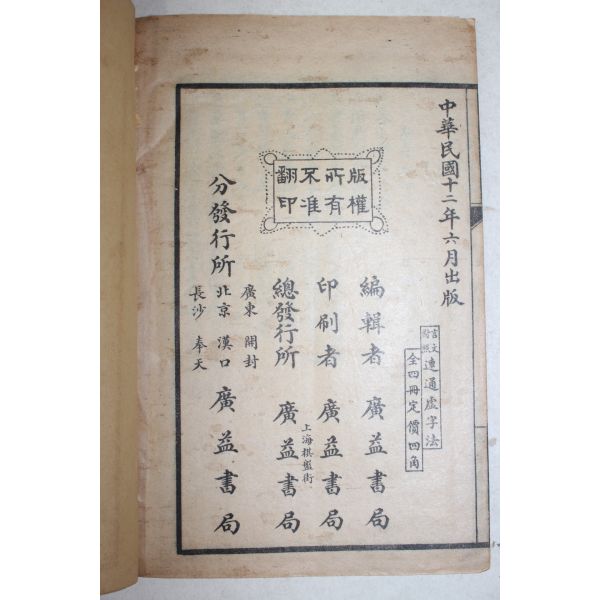 中華民國十二年六月出版
言文對照 速通虛字法
全四冊定價四角
版權所有
不准翻印
編輯者 廣益書局
印刷者 廣益書局
總發行所 上海棋盤街 廣益書局
分發行所 廣東 開封 北京 漢口 長沙 奉天 廣益書局